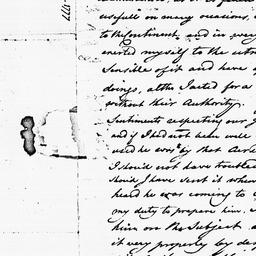 usefull on many occasions,
to the Continent, and in every
exerted myself to the utm
Sensible of it and have
doings, altho I acted for a
without their Authority.
Sentiments respecting our
and if I had not been well
used he wou'd by that
I should not have troubled
should I have sent it when
heard he was coming to
my duty to prepare him.
him on the Subject
it very properly by
1777